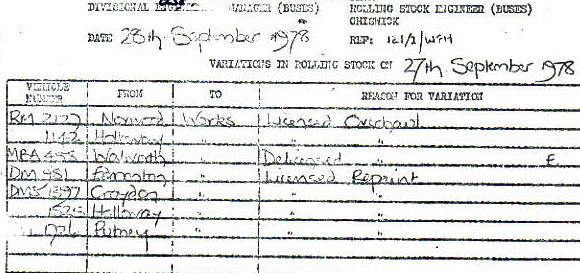 DIVISIONAL ENGINEERING MANAGER (BUSES) ROLLING STOCK ENGINEER (BUSES)
CHISWICK
DATE 28th September 1978 REF: 121/1/WFH
VARIATIONS IN ROLLING STOCK ON 27th September 1978
VEHICLE NUMBER FROM TO REASON FOR VARIATION
RM 2127 Norwood Works Licensed Overhaul
1142 Holloway " " "
MBA 453 Walworth " Delicensed " E
DM 981 Edmonton " Licensed Repaint
DMS 1397 Croydon " " "
1525 Holloway " " "
1726 Putney " " "